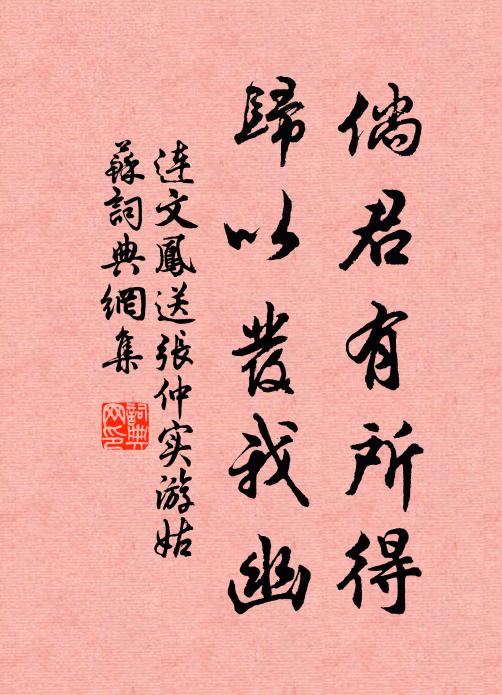 倘君有所得
歸以發我幽
连文鳳送張仲实游姑
蘇詞典網集
詞典
网印